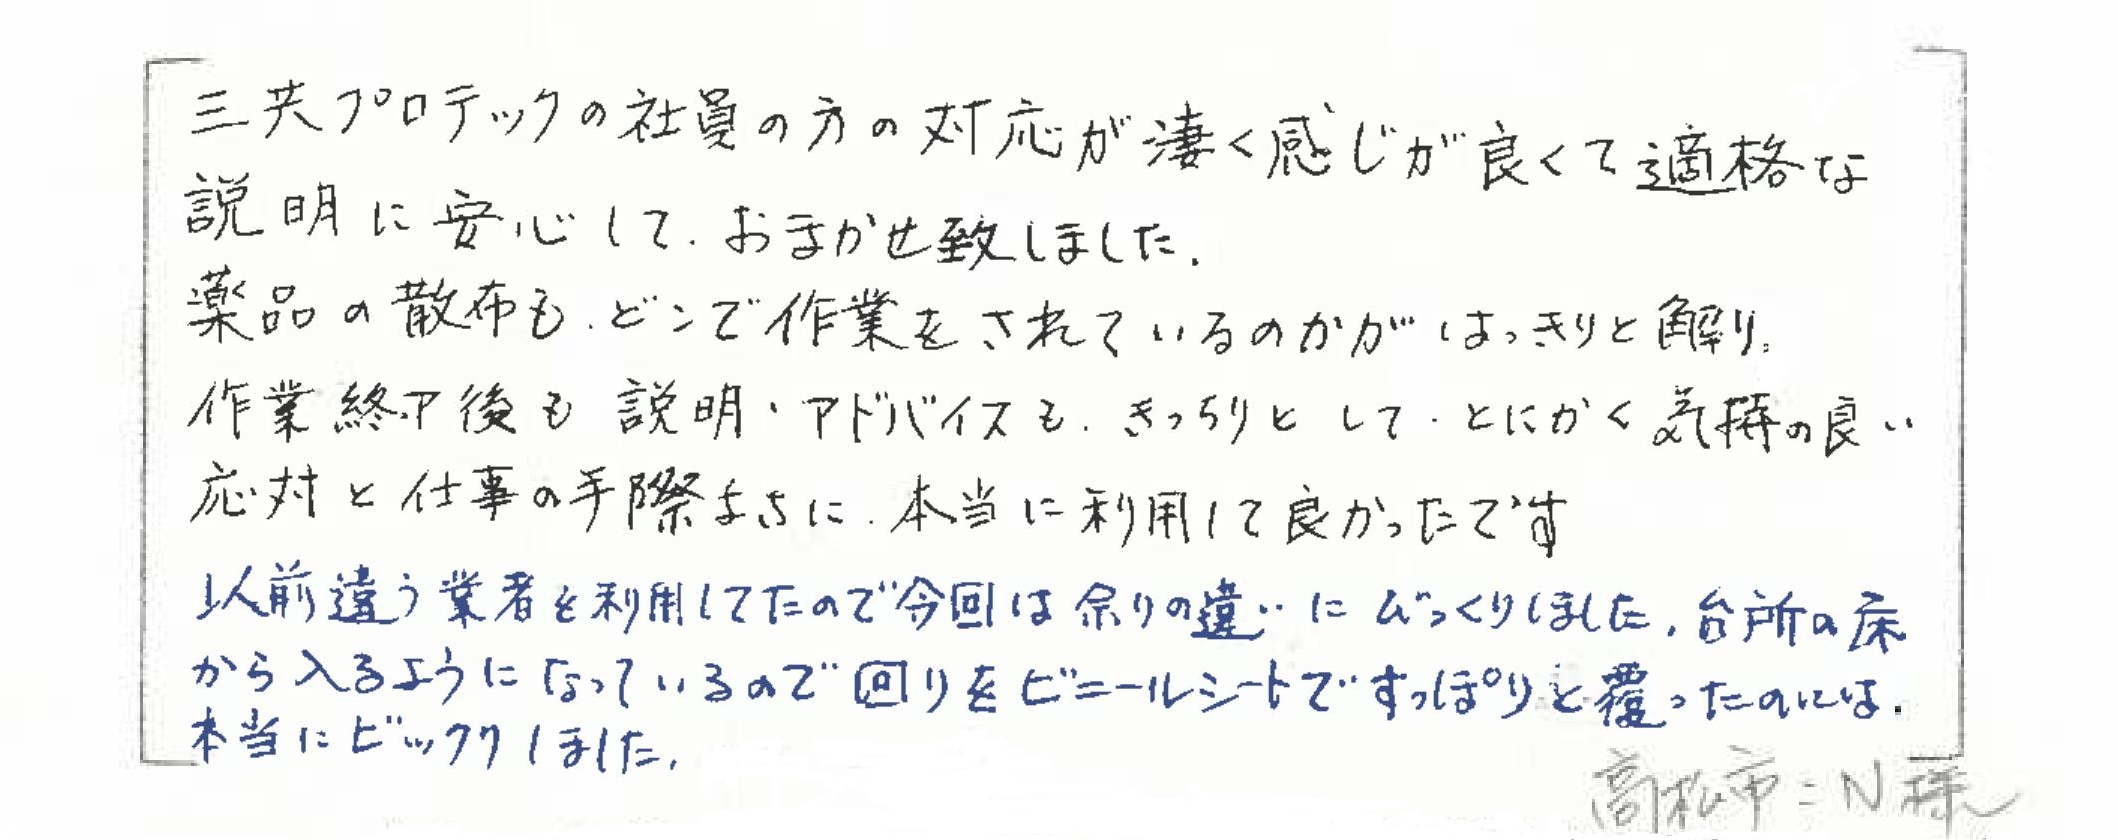 三共プロテックの社員の方の対応が凄く感じが良くて適格な
説明に安心して、おまかせ致しました。
薬品の散布も、どこで作業をされているのかがはっきりと解り、
作業終了後も説明・アドバイスも、きっちりとして、とにかく気持の良い
応対と仕事の手際よさに、本当に利用して良かったです
以前違う業者を利用してたので今回は余りの違いにびっくりしました。台所の床
から入るようになっているので回りをビニールシートですっぽりと覆ったのには、
本当にビックリしました。
高松市:N様